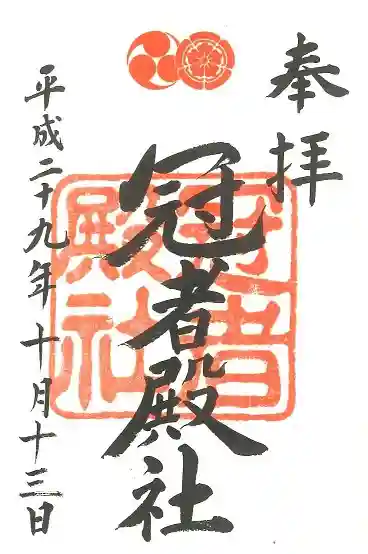 奉拝
冠者殿社
冠者殿社
平成二十九年十月十三日